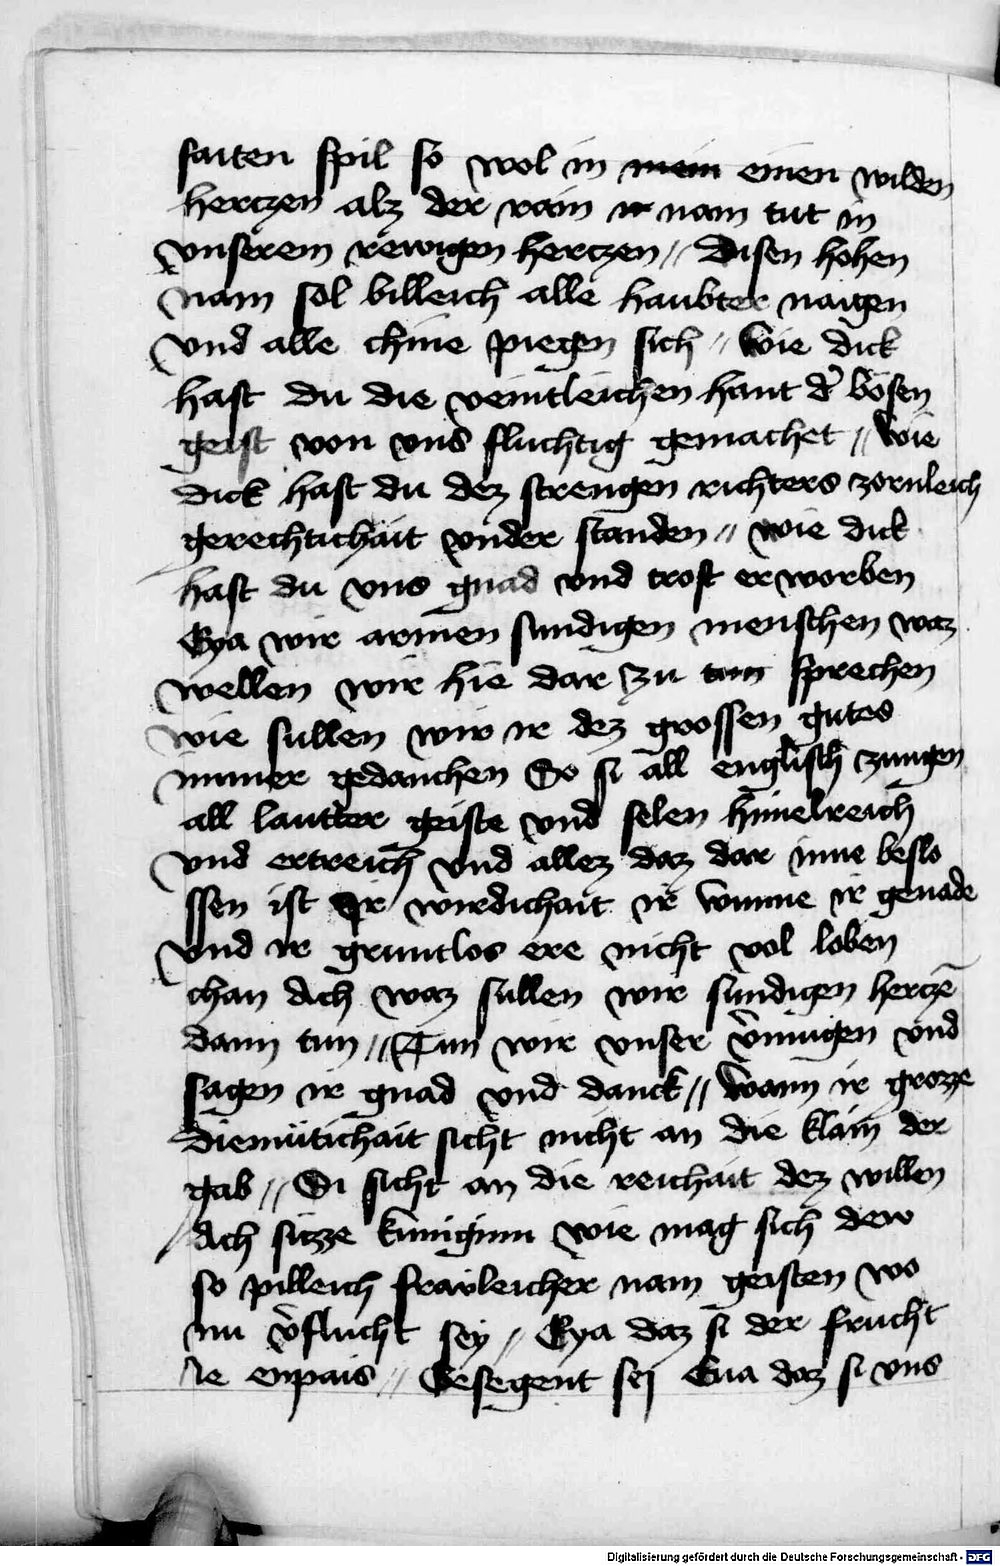 saiten spil so wol in mein einen wilden
hertzen alz der rain nam tut in
unserem rewigen hertzen // Disen hohen
nam sol billeich alle haubter naigen
vnd alle chnie piegen sich // wie dick
hast du die veintleichen hant d' bösen
geist von vns fluchtig gemachet // wie
dick hast du dez strengen richters zornleich
gerechtichait vnder standen // wie dick
hast du vns gnad vnd trost erworben
Eya wir armen sundigen menschen waz
wellen wir hie dar zu sprechen
wie sullen wir ir dez grossen gutes
immer gedanchen So si all englisch zungen
all lautter geiste vnd selen himelreich
vnd ertreich vnd allez daz dar inne beslo
ssen ist Ir wirdichait ir wunne ir genade
vnd ir gruntlos ere nicht vol loben
chan Ach waz sullen wir sundigen hertzē
dann tun // Tun wir vnser v̉mugen vnd
sagen ir gnad vnd danck // wann ir grozze
diemütichait sicht nicht an die klain der
gab // Si sicht an die reichait dez willen
Ach süzze küniginn wie mag sich dew
so pilleich fräwleicher nam geisten wo
nu v̉flucht sey // Eya daz si der frucht
ie enpais // Gesegent sej Eua daz si vns
Digitalisierung gefördert durch die Deutsche Forschungsgemeinschaft - DFG